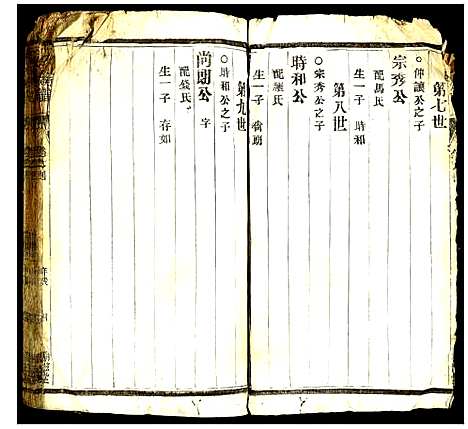 第七世
○仲讓公之子
宗秀公
配馬氏
生一子 時和
第八世
○宗秀公之子
時和公
配氏
生一子 尚朗
第九世
○時和公之子
尚朗公 字
配氏
生一子 存如